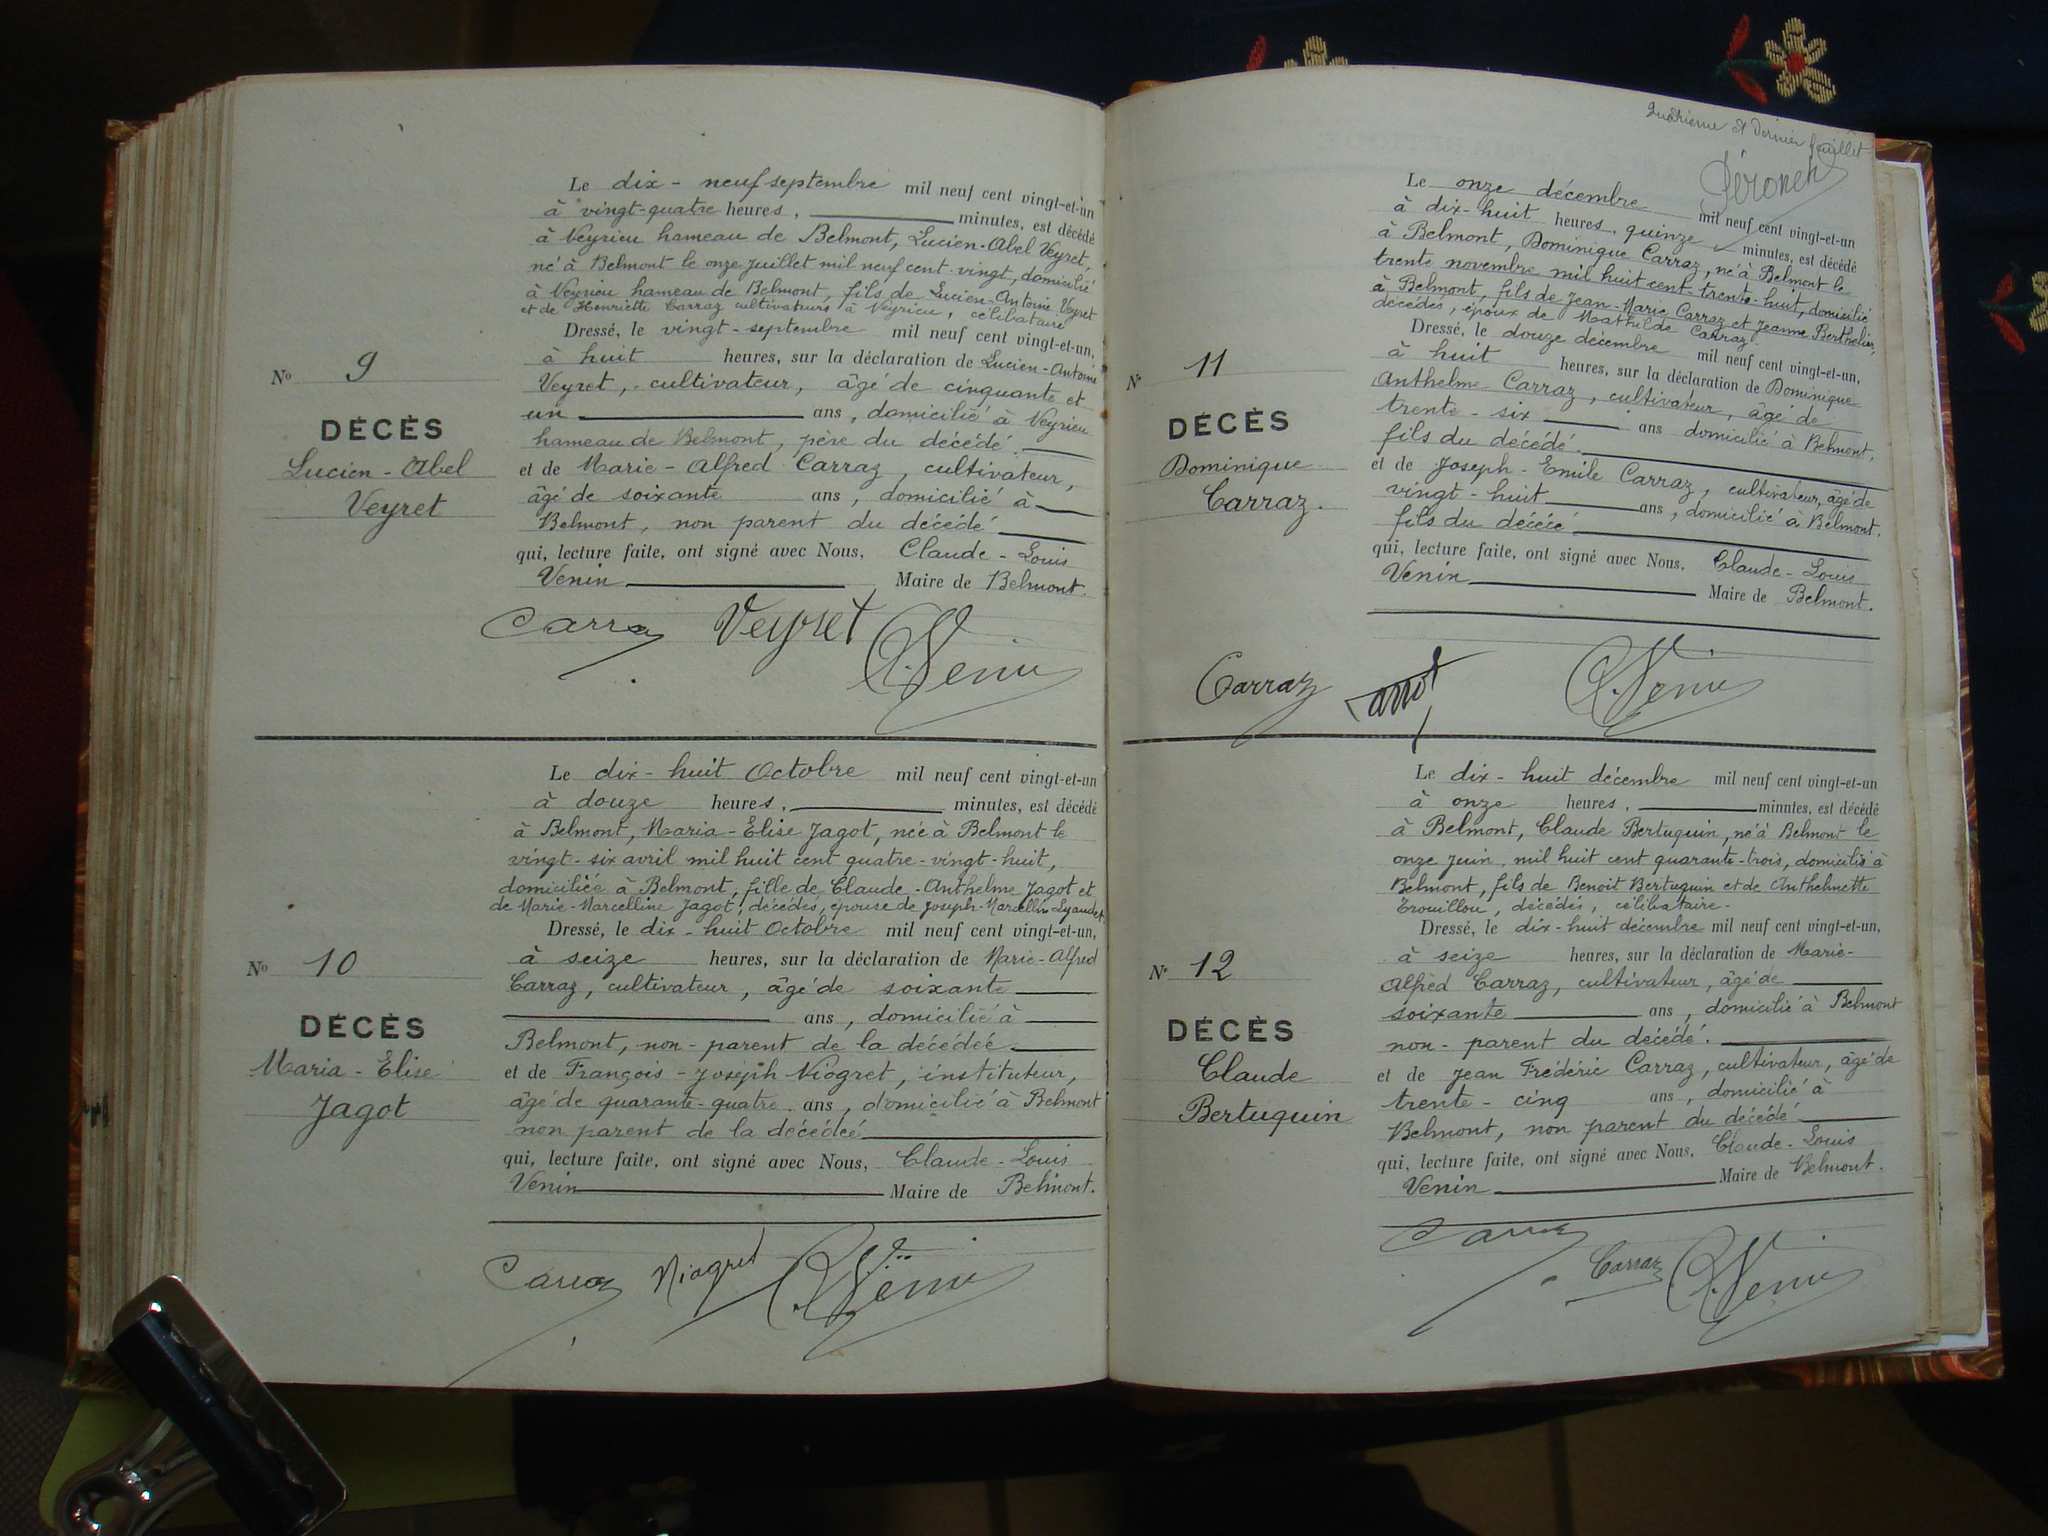 Le dix-neuf septembre mil neuf cent vingt-et-un
à vingt-quatre heures, minutes, est décédé
à Veyrieu hameau de Belmont, Lucien-Abel Veyret,
né à Belmont le onze Juillet mil neuf cent-vingt, domicilié
à Veyrieu hameau de Belmont, fils de Lucien-Antoine Veyret
et de Henriette Carraz cultivateurs à Veyrieu, célibataire
Dressé, le vingt-septembre mil neuf cent vingt-et-un,
à huit heures, sur la déclaration de Lucien-Antoine
Veyret, cultivateur, âgé de cinquante et
un ans, domicilié à Veyrieu
hameau de Belmont, père du décédé.
et de Marie-Alfred Carraz, cultivateur,
âgé de soixante ans, domicilié à
Belmont, non parent du décédé
qui, lecture faite, ont signé avec Nous, Claude-Louis
Venin Maire de Belmont.
No 9
DÉCÈS
Lucien-Abel
Veyret
Carraz Veyret C. Venin
Le dix-huit Octobre mil neuf cent vingt-et-un
à douze heures, minutes, est décédé
à Belmont, Maria-Elise Jagot, née à Belmont le
vingt-six avril mil huit cent quatre-vingt-huit,
domiciliée à Belmont, fille de Claude-Anthelme Jagot et
de Marie-Marcelline Jagot, décédés, épouse de Joseph-Marcellin Lyaudet
Dressé, le dix-huit Octobre mil neuf cent vingt-et-un,
à seize heures, sur la déclaration de Marie-Alfred
Carraz, cultivateur, âgé de soixante
ans, domicilié à
Belmont, non-parent de la décédée.
et de François-Joseph Niogret, instituteur,
âgé de quarante-quatre ans, domicilié à Belmont
non parent de la décédée
qui, lecture faite, ont signé avec Nous, Claude-Louis
Venin Maire de Belmont.
No 10
DÉCÈS
Maria-Elise
Jagot
Carraz Niogret C. Venin
Quatrième et dernier feuillet
Le onze décembre mil neuf cent vingt-et-un
à dix-huit heures, quinze minutes, est décédé
à Belmont, Dominique Carraz, né à Belmont le
trente novembre mil huit cent-trente-huit, domicilié
à Belmont, fils de Jean-Marie Carraz et Jeanne Berthelier,
décédés, époux de Mathilde Carraz.
Dressé, le douze décembre mil neuf cent vingt-et-un,
à huit heures, sur la déclaration de Dominique
Anthelme Carraz, cultivateur, âgé de
trente-six ans domicilié à Belmont,
fils du décédé.
et de Joseph-Emile Carraz, cultivateur, âgé de
vingt-huit ans, domicilié à Belmont.
fils du décédé
qui, lecture faite, ont signé avec Nous, Claude-Louis
Venin Maire de Belmont.
No 11
DÉCÈS
Dominique
Carraz.
Carraz C. Venin
Le dix-huit décembre mil neuf cent vingt-et-un
à onze heures, minutes, est décédé
à Belmont, Claude Bertuquin, né à Belmont le
onze Juin mil huit cent quarante-trois, domicilié à
Belmont, fils de Benoit Bertuquin et de Anthelmette
Trouillou, décédés, célibataire.
Dressé, le dix-huit décembre mil neuf cent vingt-et-un,
à seize heures, sur la déclaration de Marie-
Alfred Carraz, cultivateur, âgé de
soixante ans, domicilié à Belmont
non-parent du décédé.
et de Jean Frédéric Carraz, cultivateur, âgé de
trente-cinq ans, domicilié à
Belmont, non parent du décédé
qui, lecture faite, ont signé avec Nous, Claude-Louis
Venin Maire de Belmont.
No 12
DÉCÈS
Claude
Bertuquin
Carraz Carraz C. Venin